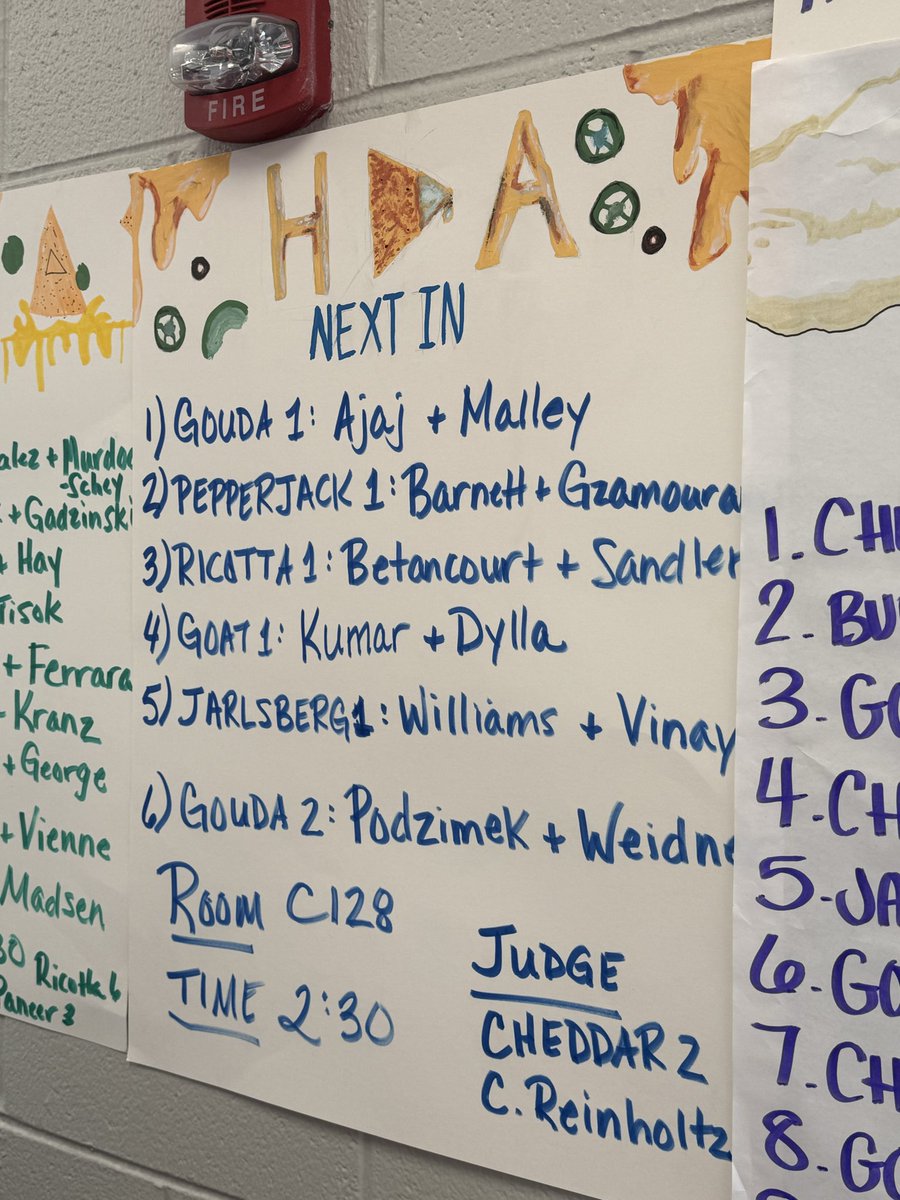 FIRE
HDA
NEXT IN
1) GOUDA 1: Ajaj + Malley
2) PEPPERJACK 1: Barnett + Gzamoura
3) RICOTTA 1: Betancourt + Sandler
4) GOAT 1: Kumar + Dylla
5) JARLSBERG 1: Williams + Vinay
6) GOUDA 2: Podzimek + Weidne
ROOM C128
TIME 2:30
JUDGE
CHEDDAR 2
C. Reinholtz
alez + Murdoc
-Schey
+ Gadzinski
+ Hay
Tisok
+ Ferrara
- Kranz
+ George
+ Vienne
Madsen
30 Ricotta 6
Paneer 3
1. CH
2. BU
3. GO
4. CH
5. JA
6. GO
7. CH
8. GO